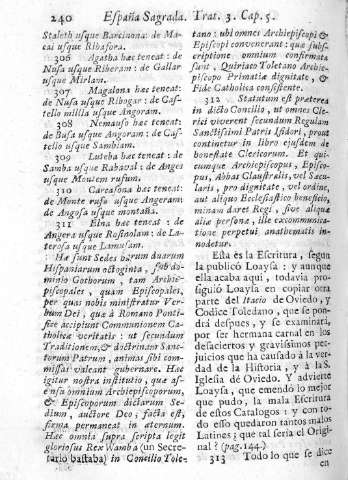 240 España Sagrada. Trat. 3. Cap. 5.
Staleth usque Barcinona: de Ma-
cai usque Ribafora.
306 Agatha hæc teneat: de
Nusa usque Riberam: de Gallar
usque Mirlam.
307 Magalona hæc teneat:
de Nusa usque Ribogar: de Cas-
tello millia usque Angoram.
308 Nemauso hæc teneat:
de Busa usque Angoram: de Cas-
tello usque Sambiam.
309 Luteba hæc teneat: de
Samba usque Rabaval: de Anges
usque Montem rufum.
310 Carcasona hæc teneat:
de Monte rufo usque Angeram:
de Angosa usque montaña.
311 Elna hæc teneat: de
Angera usque Rosinolam: de La-
terosa usque Lamusam.
Hæ sunt Sedes darum duarum
Hispaniarum octoginta, sub do-
minio Gothorum, tam Archie-
piscopales, quam Episcopales,
per quas nobis ministratur Ver-
bum Dei, quæ à Romano Ponti-
fice accipiunt Communionem Ca-
tholicæ veritatis: ut secundum
Traditionem, & doctrinam Sanc-
torum Patrum, animas sibi com-
missas valeant gubernare. Hæc
igitur nostra institutio, quæ as-
sensu omnium Archiepiscoporum,
& Episcoporum dictarum Se-
dium, auctore Deo, facta est,
firma permaneat in æternum.
Hæc omnia supra scripta legit
gloriosus Rex Wamba (un Secre-
tario bastaba) in Concilio Tole-
tano: ubi omnes Archiepiscopi &
Episcopi convenerant: quæ subs-
criptione omnium confirmata
sunt, Quiriaco Toletano Archie-
piscopo Primatiæ dignitate, &
Fide Catholica consistente.
312 Statutum est præterea
in dicto Concilio, ut omnes Cle-
rici viverent secundum Regulam
Sanctissimi Patris Isidori, prout
continetur in libro ejusdem de
honestate Clericorum. Et qui-
cumque Archiepiscopus, Episco-
pus, Abbas Claustralis, vel Sæc-
ularis, pro dignitate, vel ordine,
aut aliquo Ecclesiastico beneficio,
minam daret Regi, sive aliquæ
aliæ personæ, ille excommunica-
tione perpetui anathematis in-
nodetur.
Esta es la Escritura, segun
la publicó Loaysa: y aunque
ella acaba aqui, todavia pro-
siguió Loaysa en copiar otra
parte del Itacio de Oviedo, y
Codice Toledano, que se pon-
drá despues, y se examinará,
por ser hermana carnal en los
desaciertos y gravissimos per-
juicios que ha causado à la ver-
dad de la Historia, y à la S.
Iglesia de Oviedo. Y advierte
Loaysa, que emendó lo mejor
que pudo, la mala Escritura
de estos Catalogos: y con to-
do esso quedaron tantos malos
Latines; què tal seria el Origi-
nal? (pag. 144.)
313 Todo lo que se dice
en